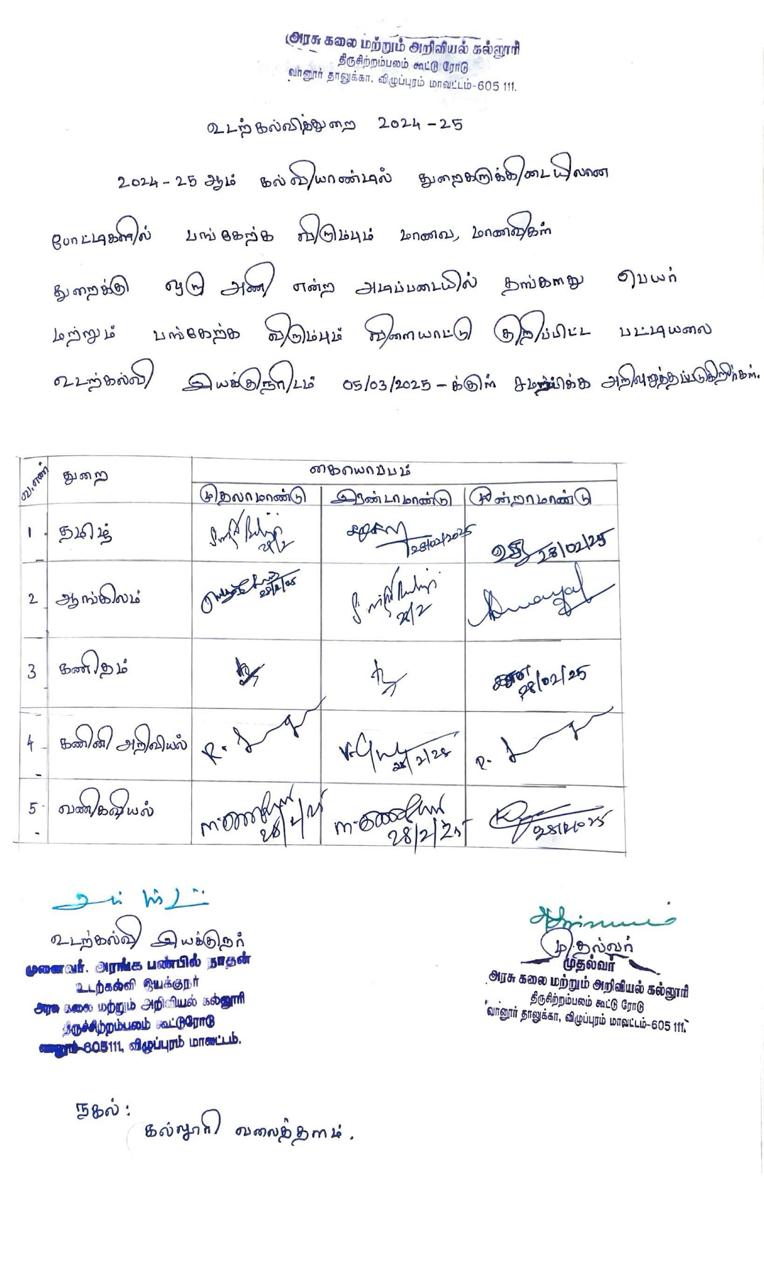 அரசு கலை மற்றும் அறிவியல் கல்லூரி
திருசிற்றம்பலம் கூட்டு ரோடு
வானூர் தாலுக்கா, விழுப்புரம் மாவட்டம்-605 111.
உடற்கல்வித்துறை 2024-25
2024-25 ஆம் கல்வியாண்டில் துறைகளுக்கிடையிலான
போட்டிகளில் பங்கேற்க விரும்பும் மாணவ, மாணவிகள்
துறைக்கு ஒரு அணி என்ற அடிப்படையில் தங்களது பெயர்
மற்றும் பங்கேற்க விரும்பும் விளையாட்டு குறிப்பிட்ட பட்டியலை
உடற்கல்வி இயக்குநரிடம் 05/03/2025-க்குள் சமர்பிக்க அறிவுறுத்தப்படுகிறார்கள்.
வ.எண் துறை கையொப்பம்
முதலாமாண்டு இரண்டாமாண்டு மூன்றாமாண்டு
1 தமிழ் 28/2 28/02/2025 28/02/25
2 ஆங்கிலம் 28/2/25 28/2
3 கணிதம் 28/02/25
4 கணினி அறிவியல் 28/2/25
5 வணிகவியல் 28/2/25 28/2/25 28/2/2025
உடற்கல்வி இயக்குநர்
முனைவர். அரங்க பண்பில் நாதன்
உடற்கல்வி இயக்குநர்
அரசு கலை மற்றும் அறிவியல் கல்லூரி
திருச்சிற்றம்பலம் கூட்டுரோடு
வானூர்-605111, விழுப்புரம் மாவட்டம்.
முதல்வர்
முதல்வர்
அரசு கலை மற்றும் அறிவியல் கல்லூரி
திருசிற்றம்பலம் கூட்டு ரோடு
வானூர் தாலுக்கா, விழுப்புரம் மாவட்டம்-605 111.
நகல்:
கல்லூரி வலைத்தளம்.